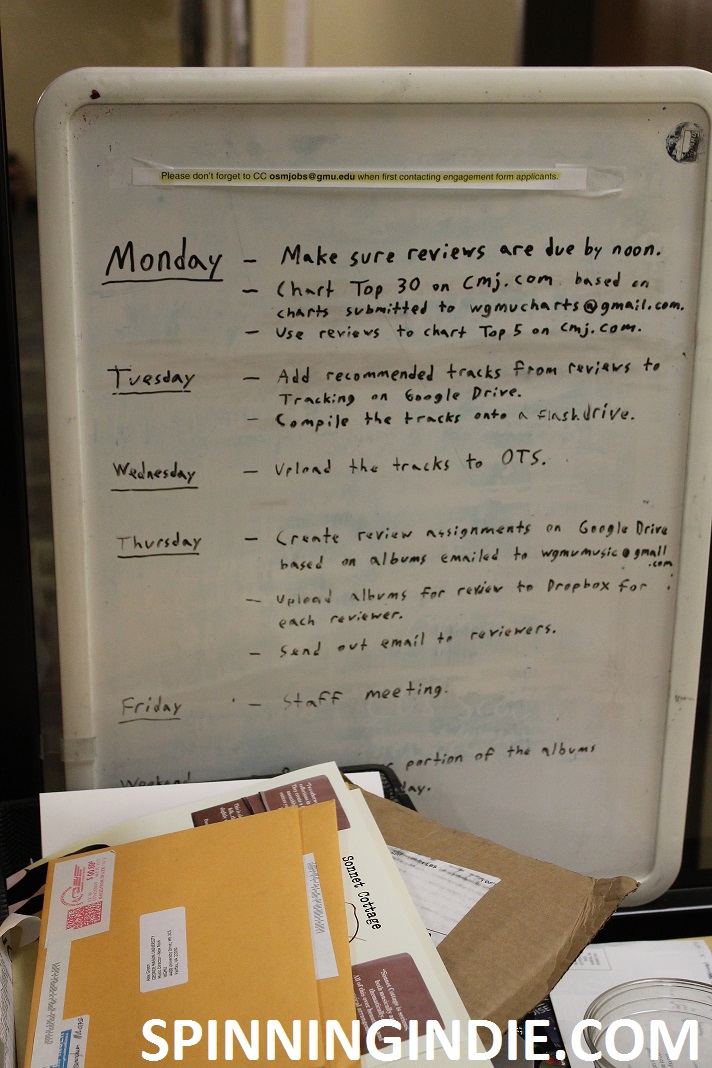 Please don't forget to CC osmjobs@gmu.edu when first contacting engagement form applicants.
Monday - Make sure reviews are due by noon.
- Chart Top 30 on Cmj.com based on
charts submitted to wgmucharts@gmail.com.
- Use reviews to chart Top 5 on Cmj.com.
Tuesday - Add recommended tracks from reviews to
Tracking on Google Drive.
- Compile the tracks onto a flashdrive.
Wednesday - Upload the tracks to OTS.
Thursday - Create review assignments on Google Drive
based on albums emailed to wgmumusic@gmail
.com
- Upload albums for review to Dropbox for
each reviewer.
- Send out email to reviewers.
Friday - Staff meeting.
Weekend portion of the albums
day.
Sonnet Cottage
SPINNINGINDIE.COM